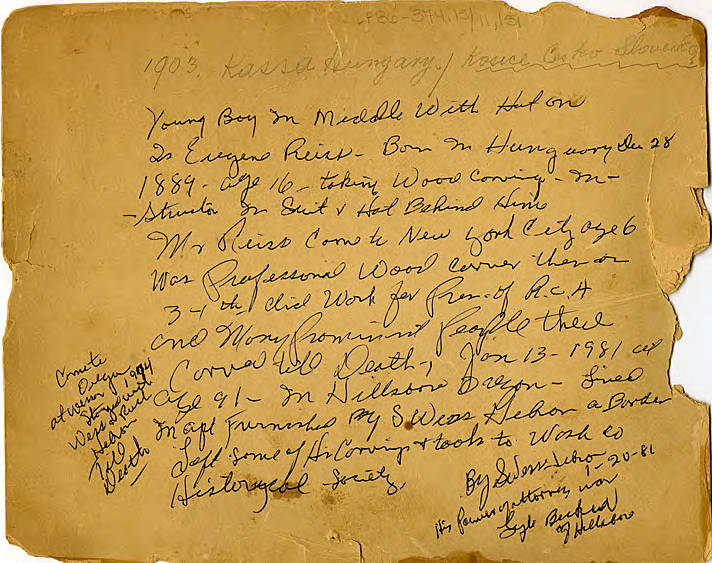 LP86-374.15/11,151
1903. Kassa Hungary./ Kosice Cesko Slovensko
Young Boy In Middle With Hat on
Is Eugene Reisz - Born In Hunguary Dec 28
1889 - age 16 - taking Wood Carving - In-
- structor In Suit & Hat Behind Him
Mr Reisz Came to New York City age 6
Was Professional Wood carver there on
3-4th did Work for Pres. of R.C.A
and Many Prominent People there
Carved till Death, Jan 13 - 1981 at
age 91 - In Hillsboro Oregon - Lived
In apt Furnished By S Weiss Hebron a Border
Left some of His Carvings & tools to Wash co
Historycal Society.
Came to
Oregon
1974
Hebron
till
Death
By S Weiss Hebron
1-20-81
His Power of attorney was
of Hillsboro